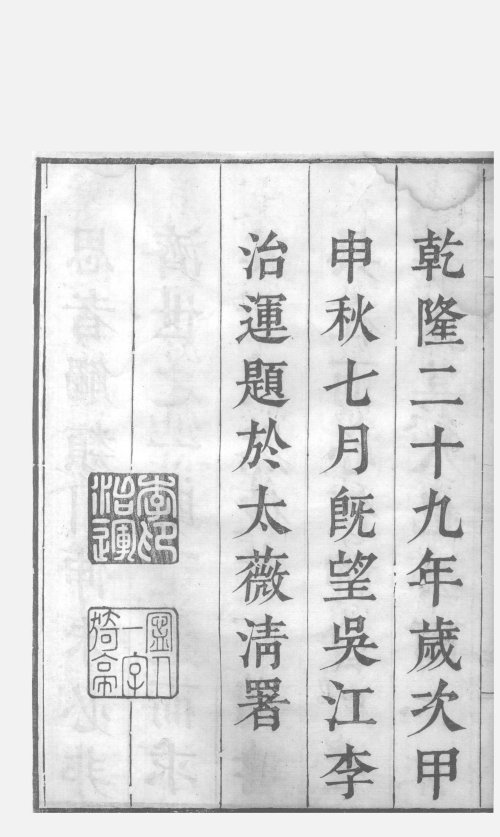 乾隆二十九年歲次甲
申秋七月旣望吳江李
治運題於太薇淸署
李印
治運
一字
漪亭